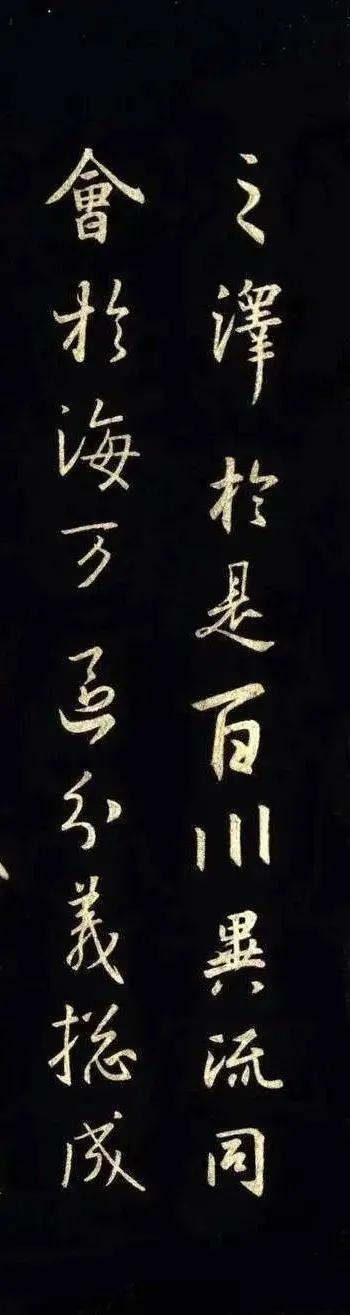 之澤於是百川異流同
會於海万區分義捴成